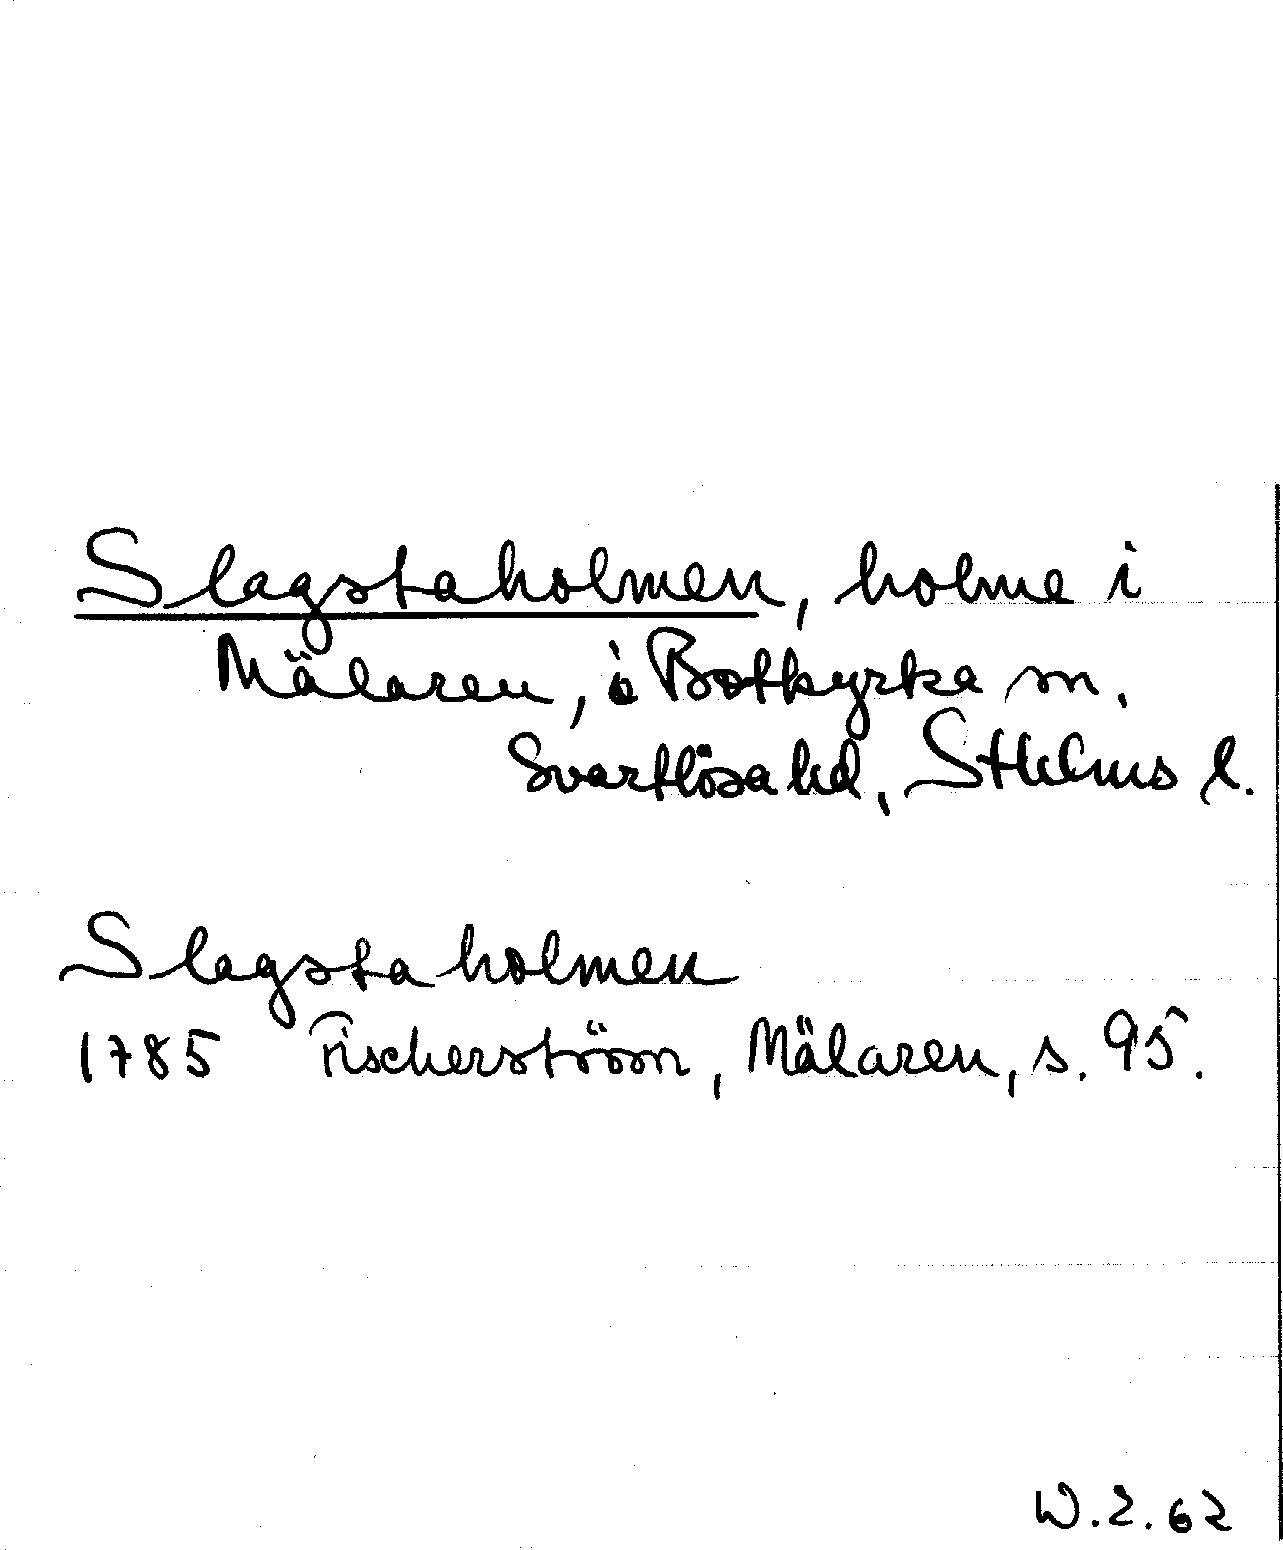 Slagstaholmen, holme i
Mälaren, i Botkyrka sn.
Svartlösa hd, Sthlms l.
Slagstaholmen
1785 Fischerström, Mälaren, s. 95.
W.E. 62